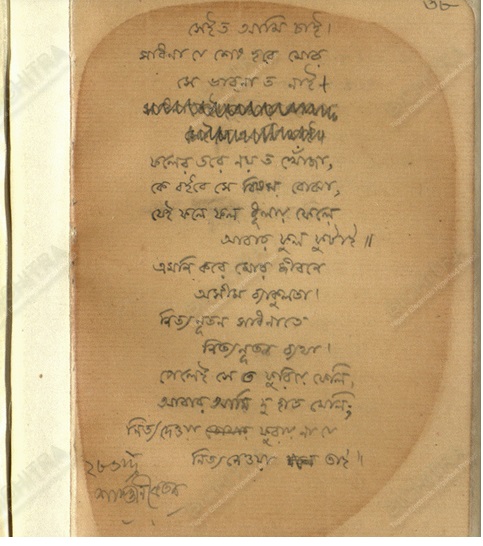 ৩৮
সেইত আমি চাই।
সাধনা যে শেষ হবে মোর
সে ভাবনা ত নাই।
ফলের তরে নয় ত খোঁজা,
কে বইবে সে বিষম বোঝা,
যেই ফলে ফল ধূলায় ফেলে
আবার ফুল ফুটাই॥
এমনি করে মোর জীবনে
অসীম ব্যাকুলতা।
নিত্যনূতন সাধনাতে
নিত্যনূতন ব্যথা।
পেলেই সে ত ফুরিয়ে ফেলি,
আবার আমি দু হাত মেলি;
নিত্যদেওয়া ফুরায় না যে
নিত্যনেওয়া তাই॥
২৮ ভাদ্র
শান্তিনিকেতন